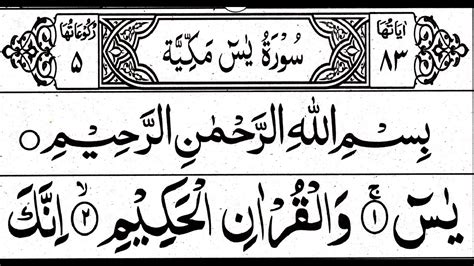 اٰیَاتُهَا ۸۳ سُوْرَةُ يٰسٓ مَكِّيَّةٌ رُكُوْعَاتُهَا ۵
بِسْمِ اللّٰهِ الرَّحْمٰنِ الرَّحِيْمِ ○
يٰسٓ ۚ ① وَالْقُرْاٰنِ الْحَكِيْمِ ۙ ② اِنَّكَ